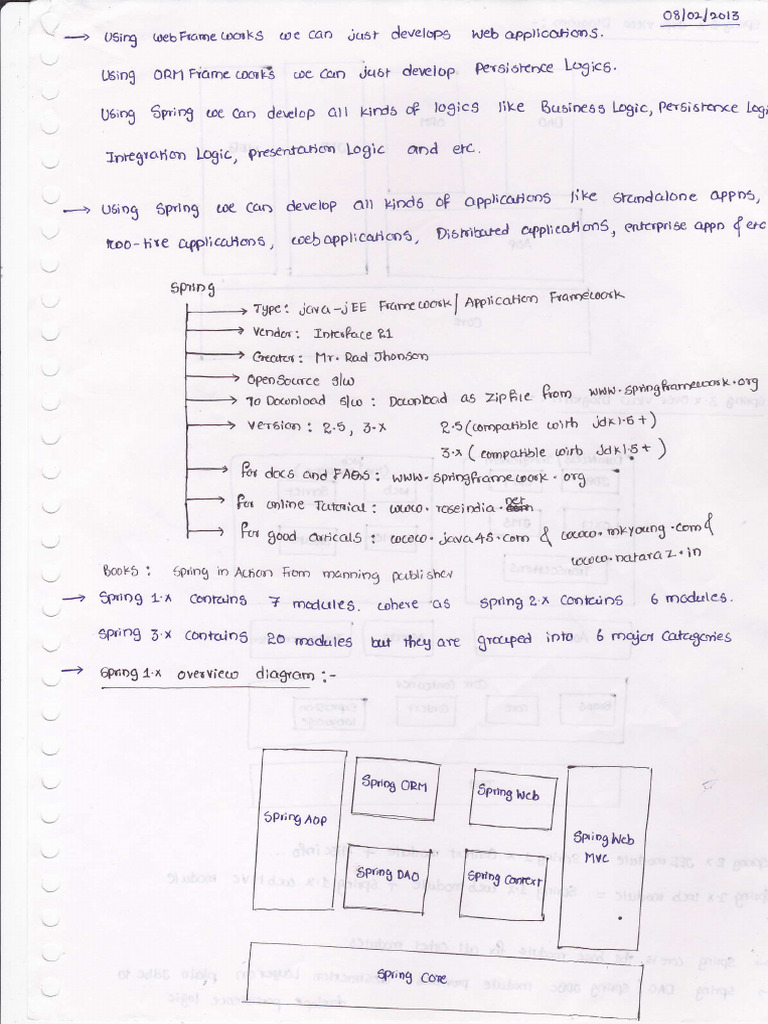 08/02/2013
→ Using webFrame works we can just develops web applications.
Using ORM Frame works we can just develop Persistence Logics.
Using Spring we can develop all kinds of logics like Business Logic, Persistence Logi
Integration Logic, presentation Logic and etc.
→ Using spring we can develop all kinds of applications like standalone appns,
two-tire applications, web applications, Distributed applications, enterprise appn & etc
Spring
→ Type: java-jEE Framework/ Application Framework
→ Vendor: Interface 21
→ Creator: Mr. Rad Jhonson
→ OpenSource s/w
→ To Download s/w: Download as zip file from www.springframework.org
→ Version: 2.5, 3.x 2.5 (compatible with jdk1.5+)
3.x ( compatible with jdk1.5+ )
→ for docs and FAQs: www.springframework.org
→ for online Tutorial: www.roseindia.net
→ for good articals: www.java4s.com & www.mkyoung.com &
www.nataraz.in
Books: Spring in Action from manning publisher
→ Spring 1.x contains 7 modules. where as spring 2.x contains 6 modules.
spring 3.x contains 20 modules but they are grouped into 6 major categories
→ spring 1.x overview diagram:-
Spring AOP
Spring ORM
Spring Web
Spring Web
MVC
Spring DAO
Spring Context
Spring Core